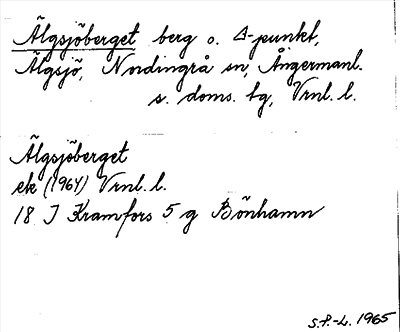 Älgsjöberget berg o. Δ-punkt,
Älgsjö, Nordingrå sn, Ångermanl.
s. doms. tg, Vrnl. l.
Älgsjöberget
ek (1964) Vrnl. l.
18 J Kramfors 5 g Bönhamn
S.P.-L. 1965